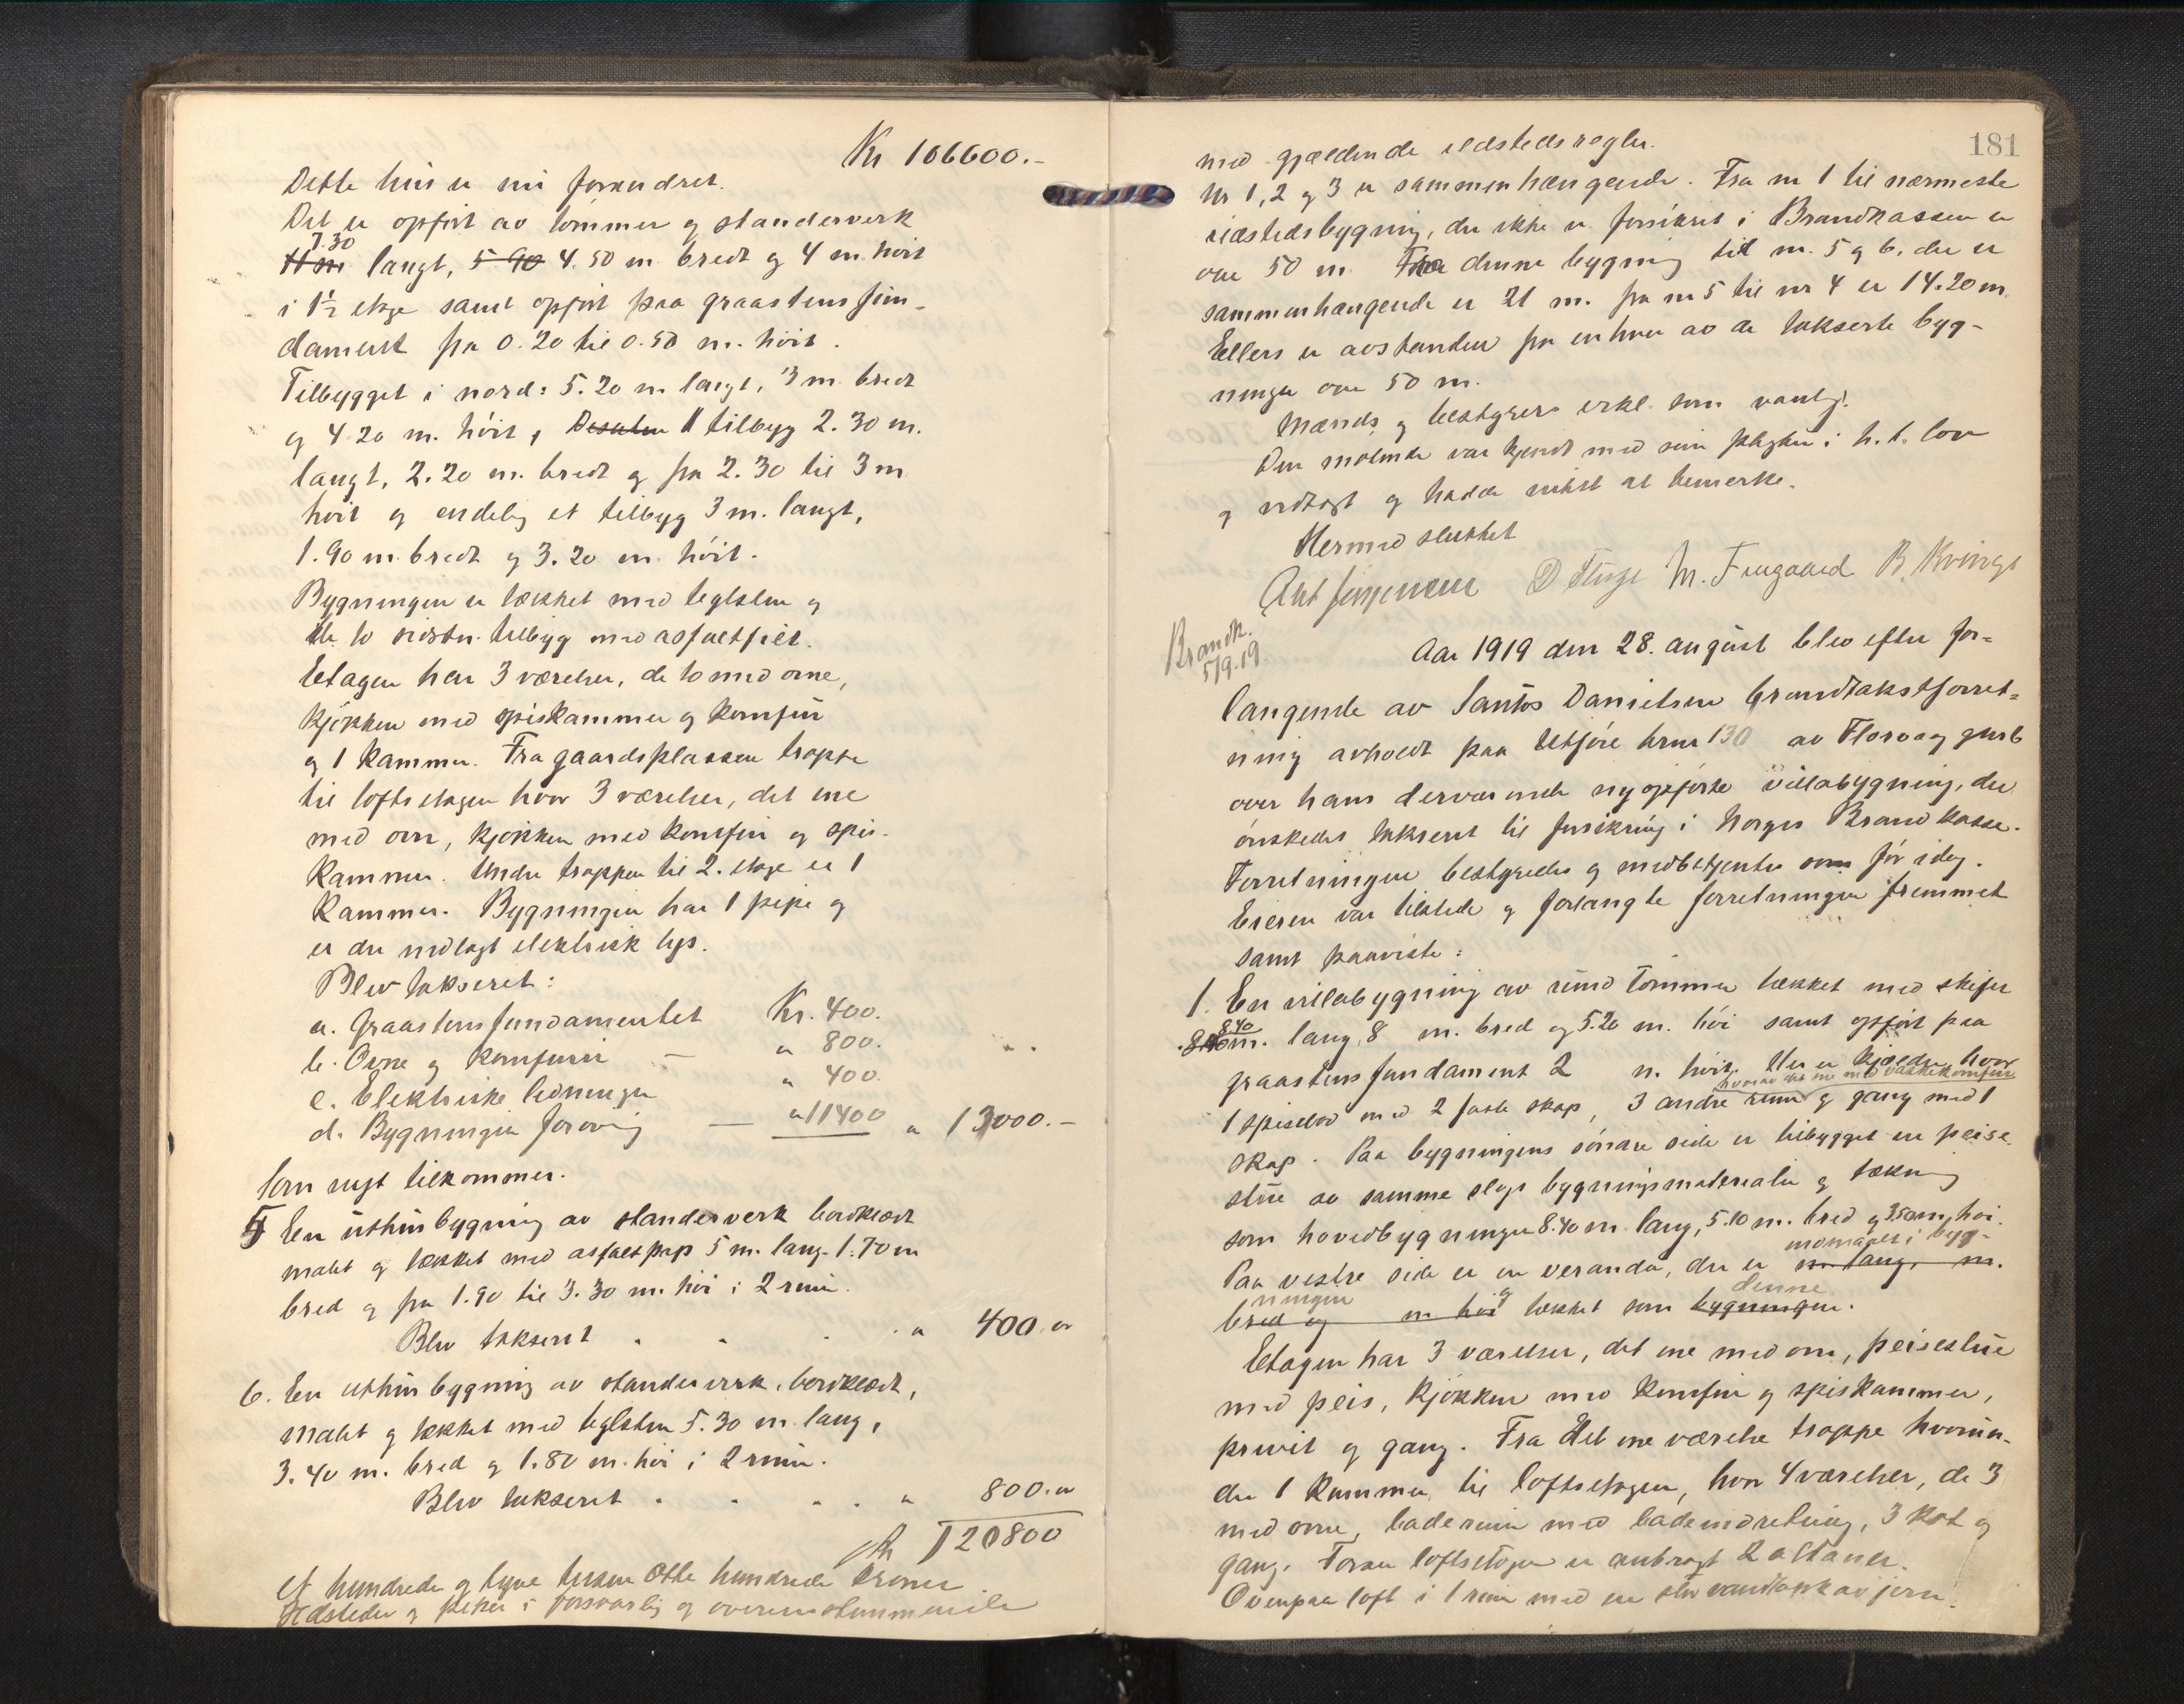 Kr 106600.-
Dette hus er nu forandret.
Det er opført av tømmer og standerverk
7.30
11 m langt, 5 90 4.50 m bredt og 4 m høit
i 1½ etage samt opført paa graastensfun-
dament fra 0.20 til 0.50 m. høit.
Tilbygget i nord: 5.20 m langt, 3 m. bredt
og 4.20 m. høit, Desuten 1 tilbyg 2.30 m.
langt, 2.20 m. bredt og fra 2.30 til 3 m
høit og endelig et tilbyg 3 m. langt,
1.90 m. bredt og 3.20 m. høit.
Bygningen er tækket med teglsten og
de to sidstn. tilbyg med asfaltfilt.
Etagen har 3 værelser, de to med ovne,
kjøkken med spiskammer og komfur
og 1 kammer. Fra gaardsplassen trappe
til loftsetagen hvor 3 værelser, det ene
med ovn, kjøkken med komfur og spis-
kammer. Under trappen til 2. etage er 1
kammer. Bygningen har 1 pipe og
er der indlagt elektrisk lys.
Blev takseret:
a. Graastensfundamentet Kr. 400.
b. Ovne og komfurer — " 800.
c. Elektriske ledninger " 400.
d. Bygningen forøvrig — " 11400 " 13000.-
Som nyt tilkommer.
5 En uthusbygning av standerverk bordklædt
malt og tækket med asfaltpap 5 m. lang. 1.70 m
bred og fra 1.90 til 3.30 m. høi i 2 rum.
Blev takseret . . . . " 400. "
6. En uthusbygning av standerverk, bordklædt,
malt og tækket med teglsten 5.30 m. lang,
3.40 m. bred og 1.80 m. høi i 2 rum.
Blev takseret . . . . " 800. "
Kr 120800
Et hundrede og tyve tusen otte hundrede kroner
Ildsteder og piper i forsvarlig og overensstemmende
181
med gjældende ildstedsregler.
Nr 1, 2 og 3 er sammenhængende. Fra nr 1 til nærmeste
ildstedsbygning, der ikke er forsikret i Brandkassen er
over 50 m. Fra denne bygning til nr. 5 og 6, der er
sammenhængende er 21 m. fra nr 5 til nr 4 er 14.20 m
Ellers er avstanden fra enhver av de takserte byg-
ninger over 50 m.
Mænds og bestyrers erkl. som vanlig.
Den møtende var kjendt med sin pligter i h. t. lov
og vedtægt og hadde intet at bemerke.
Hermed sluttet
D M. B.
Brandk.
5/9.19.
Aar 1919 den 28. august blev efter for-
langende av Santos Danielsen brandtakstforret-
ning avholdt paa Utsjøre brnr 130 av Florvaag gnr 6
over hans derværende nyopførte villabygning, der
ønskedes takseret til forsikring i Norges Brandkasse.
Forretningen bestyredes og medbetjentes som før idag.
Eieren var tilstede og forlangte forretningen fremmet
samt paaviste:
1. En villabygning av rund tømmer tækket med skifer
8.40
m. lang, 8 m. bred og 5.20 m. høi samt opført paa
graastensfundament 2 m. høit. Der er kjælder, hvor
hvorav det ene med vaskekomfur
1 spisebod med 2 faste skap, 3 andre rum og gang med 1
skap. Paa bygningens søndre side er tilbygget en peise
stue av samme slags bygningsmaterialer og tækning
som hovedbygningen 8.40 m. lang, 5.10 m. bred og 3.50 m. høi.
indmaalt i byg-
Paa vestre side er en veranda, der er m lang, m.
ningen og denne
bred og m høi tækket som bygningen.
Etagen har 3 værelser, det ene med ovn, peisestue
med peis, kjøkken med komfur og spiskammer,
privit og gang. Fra det ene værelse trappe hvorun-
der 1 kammer, til loftsetagen, hvor 4 værelser, de 3
med ovne, baderum med badeindretning, 3 kot og
gang. Foran loftsetagen er anbragt 2 altaner.
Ovenpaa loft i 1 rum med en stor vandtank av jern.